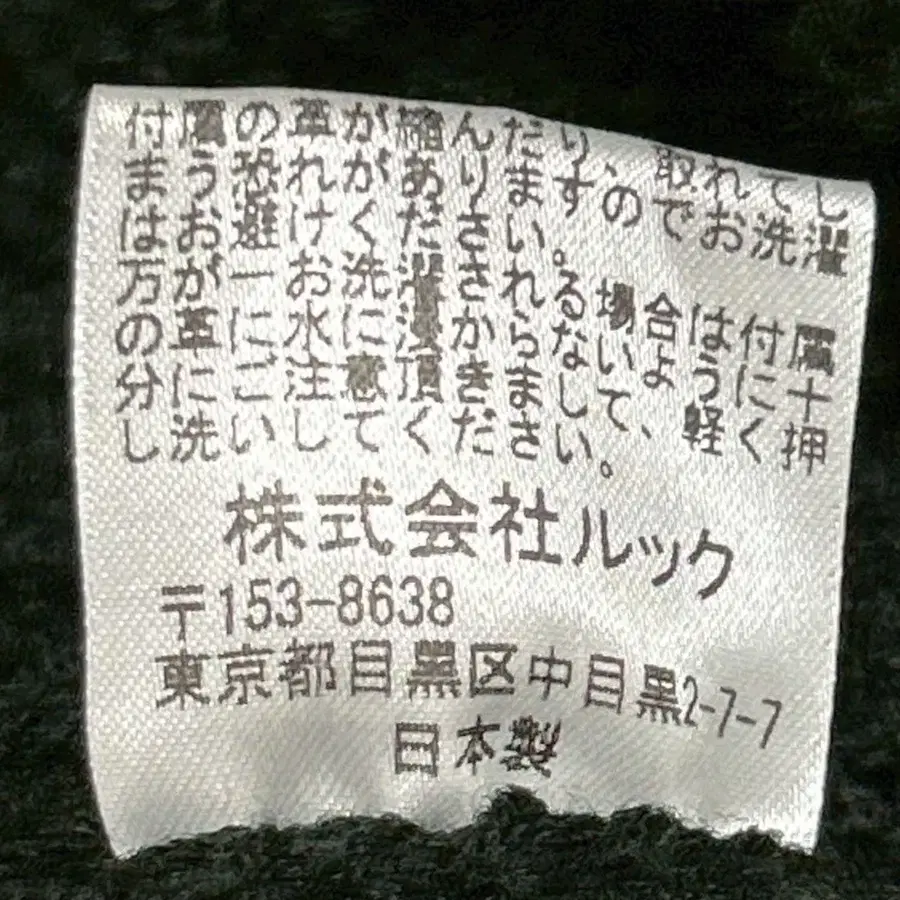 付属の革が縮んだり、取れてし
まう恐れがありますのでお洗濯
はお避けください。
万が一お洗濯される場合は付属
の革に水に浸からないように十
分にご注意頂きまして、軽く押
し洗いしてください。
株式会社ルック
〒153-8638
東京都目黒区中目黒2-7-7
日本製